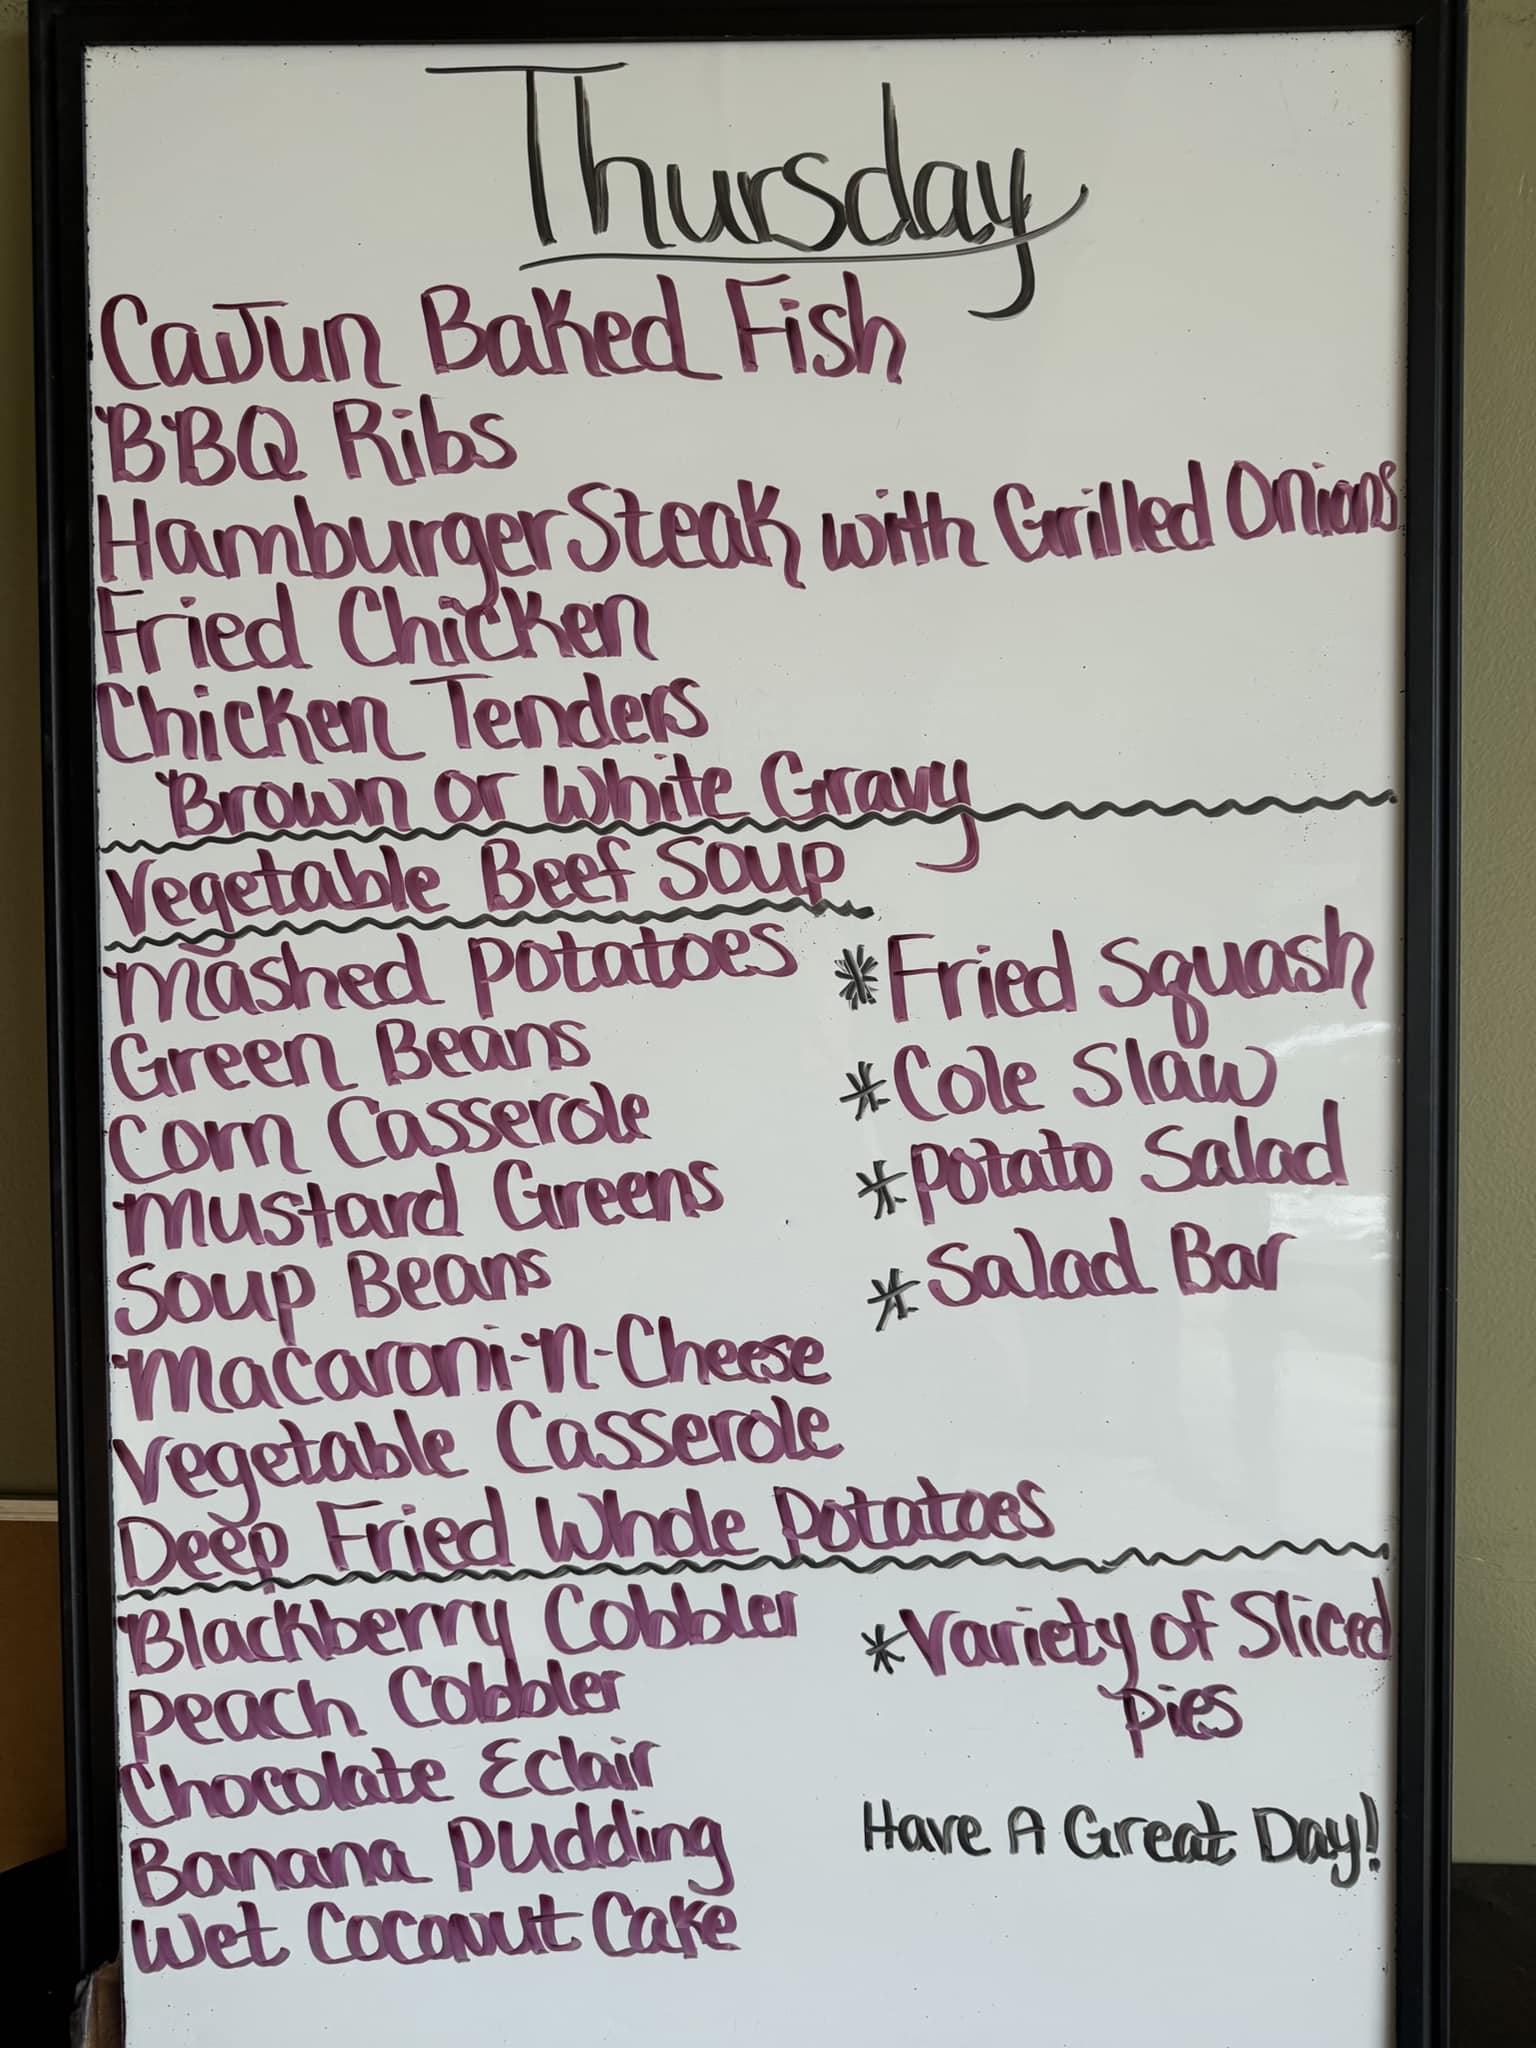 Thursday
Cajun Baked Fish
BBQ Ribs
Hamburger Steak with Grilled Onions
Fried Chicken
Chicken Tenders
Brown or White Gravy
Vegetable Beef Soup
Mashed Potatoes
Green Beans
Corn Casserole
Mustard Greens
Soup Beans
Macaroni-n-Cheese
Vegetable Casserole
Deep Fried Whole Potatoes
*Fried Squash
*Cole Slaw
*Potato Salad
*Salad Bar
Blackberry Cobbler
Peach Cobbler
Chocolate Eclair
Banana Pudding
Wet Coconut Cake
*Variety of Sliced
Pies
Have A Great Day!